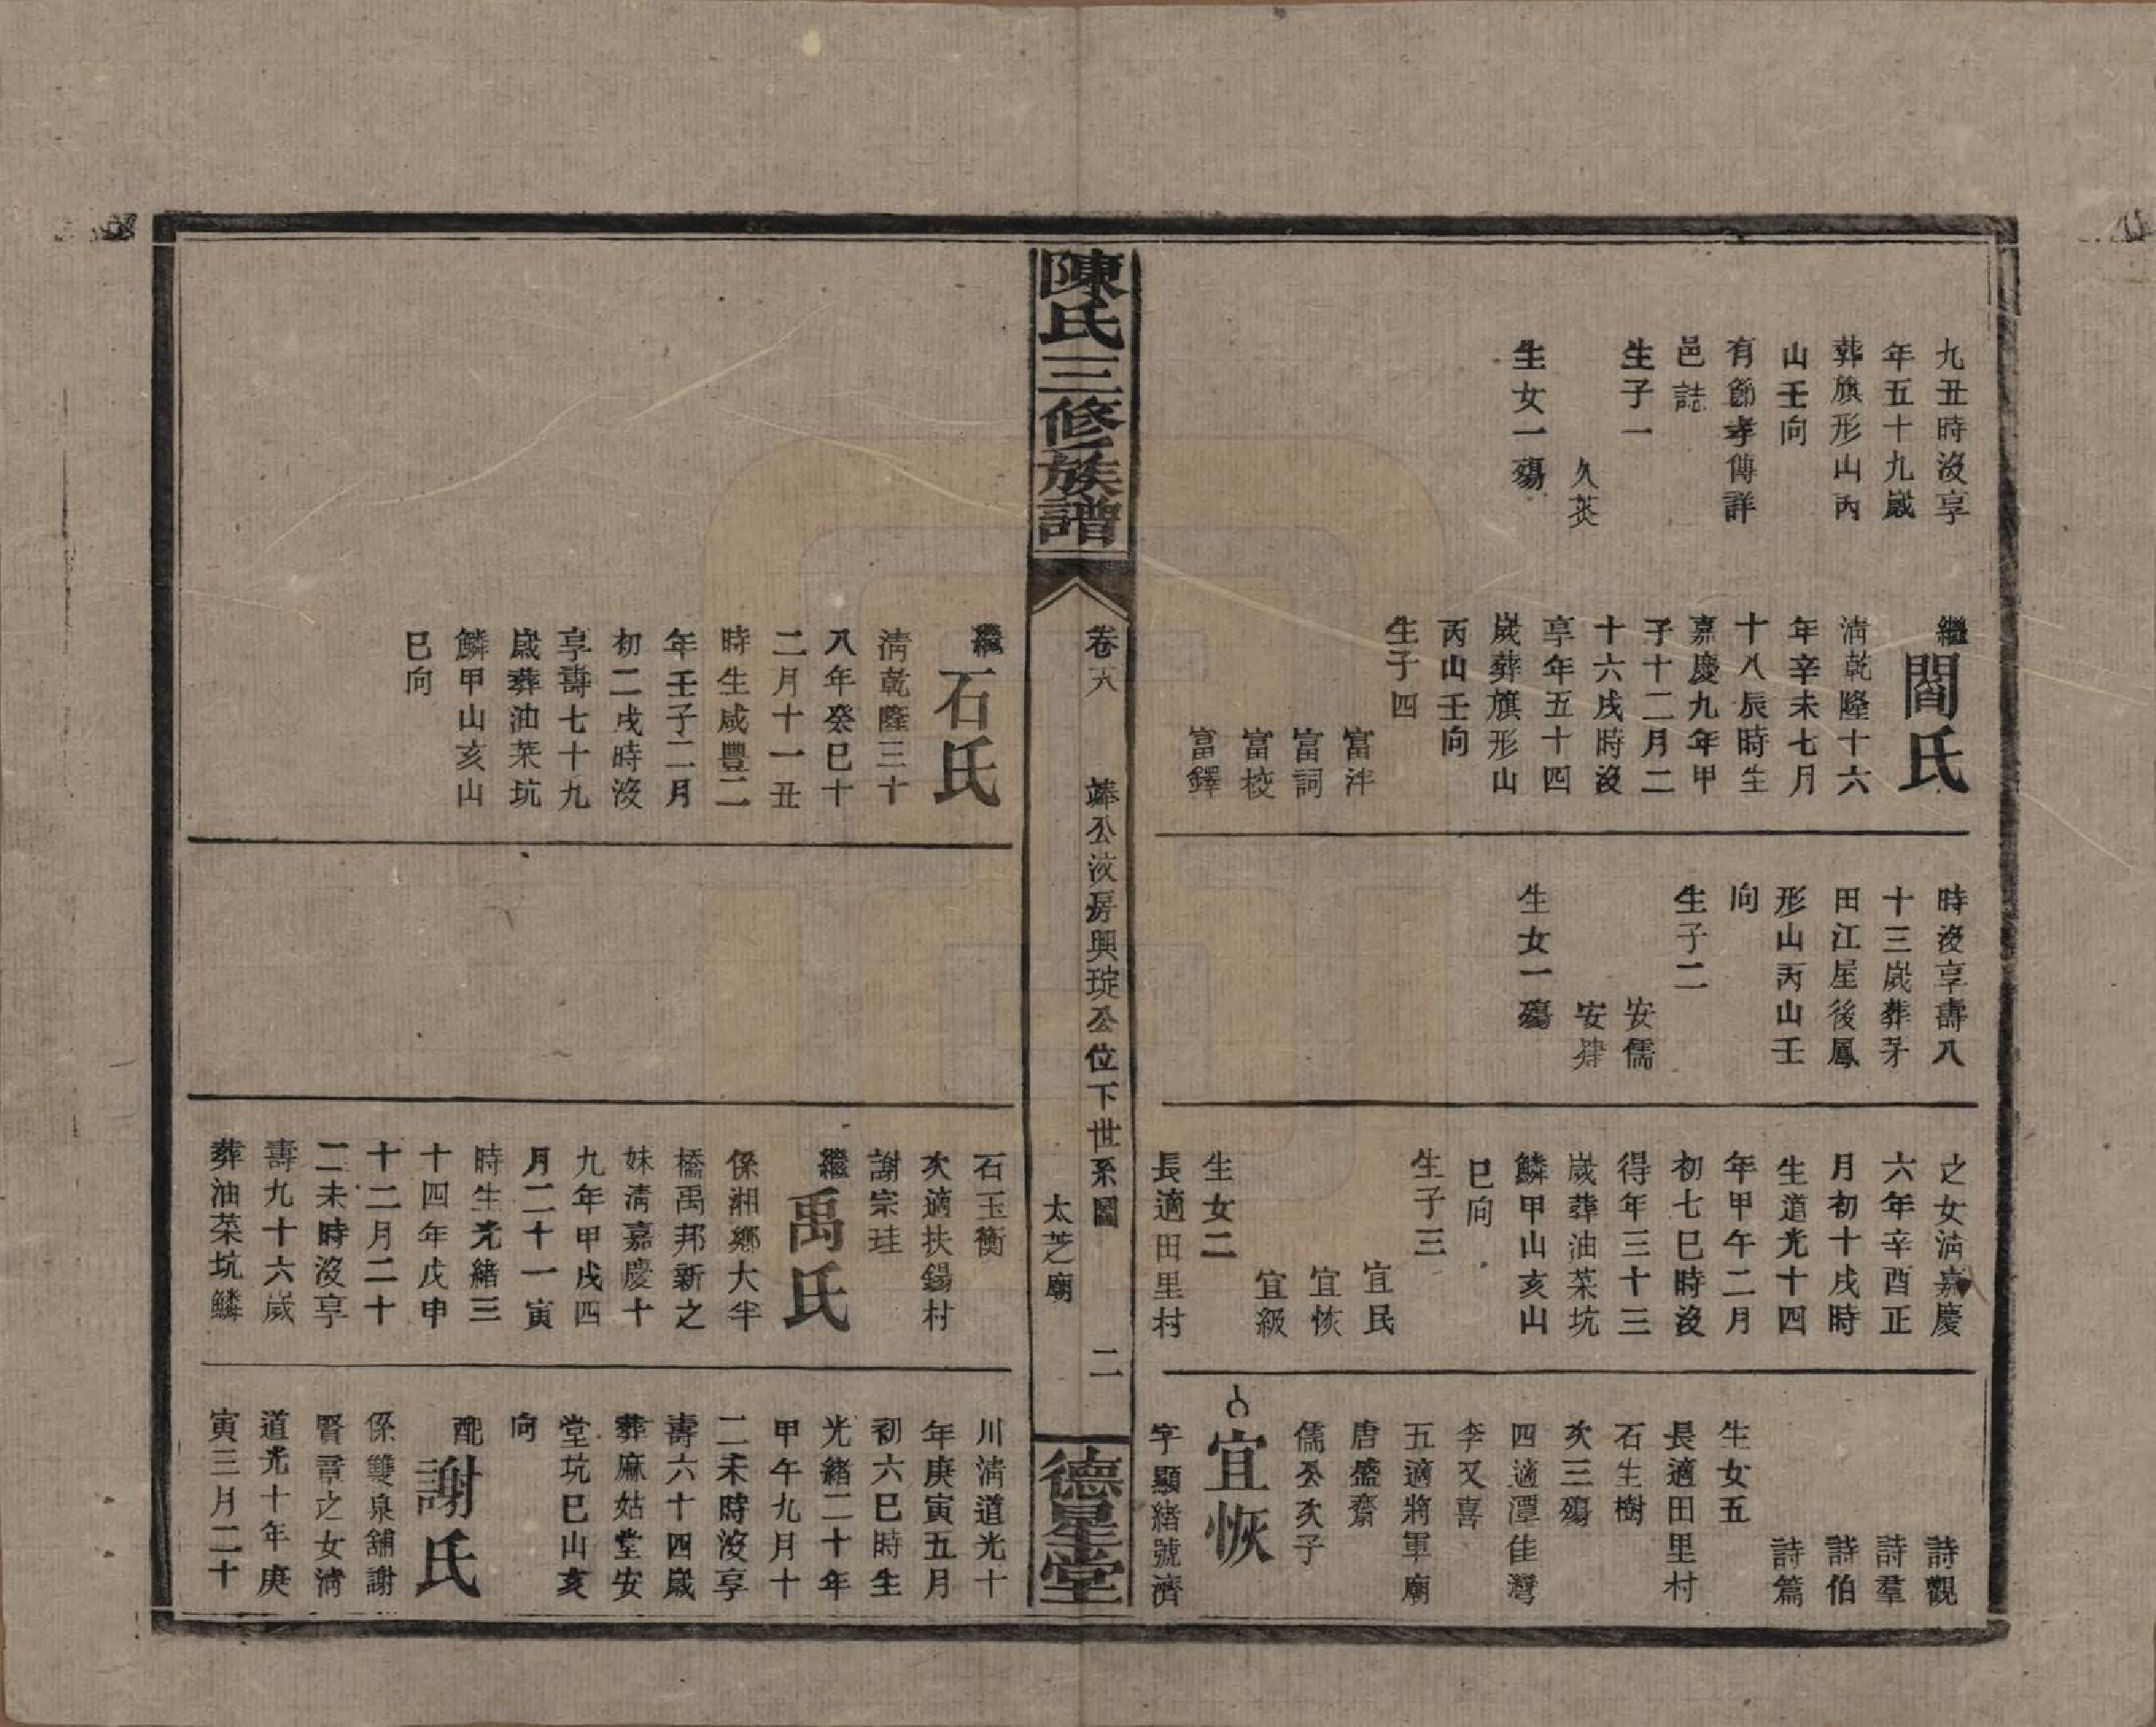 九丑時沒享
年五十九歲
葬旗形山丙
山壬向
有節孝傳詳
邑誌
生子一
久英
生女一殤
繼閻氏
清乾隆十六
年辛未七月
十八辰時生
嘉慶九年甲
子十二月二
十六戌時沒
享年五十四
歲葬旗形山
丙山壬向
生子四
富泮
富詞
富校
富鐸
時沒享壽八
十三歲葬茅
田江屋後鳳
形山丙山壬
向
生子二
安儒
安肆
生女一殤
之女清嘉慶
六年辛酉正
月初十戌時
生道光十四
年甲午二月
初七巳時沒
得年三十三
歲葬油菜坑
鱗甲山亥山
巳向
生子三
宜民
宜恢
宜級
生女二
長適田里村
詩觀
詩羣
詩伯
詩篇
生女五
長適田里村
石生樹
次三殤
四適潭佳灣
李又喜
五適將軍廟
唐盛齋
儒公次子
宜恢
字顯緒號濟
陳氏三修族譜
卷六
公波房興琔公位下世系圖
太芝廟
二
德星堂
繼石氏
清乾隆三十
八年癸巳十
二月十一丑
時生咸豐二
年壬子二月
初二戌時沒
享壽七十九
歲葬油菜坑
鱗甲山亥山
巳向
石玉衡
次適扶錫村
謝宗珪
繼禹氏
係湘鄉大坪
橋禹邦新之
妹清嘉慶十
九年甲戌四
月二十一寅
時生光緒三
十四年戊申
十二月二十
二未時沒享
壽九十六歲
葬油菜坑鱗
川清道光十
年庚寅五月
初六巳時生
光緒二十年
甲午九月十
二未時沒享
壽六十四歲
葬麻姑堂安
堂坑巳山亥
向
配謝氏
係雙泉舖謝
賢章之女清
道光十年庚
寅三月二十